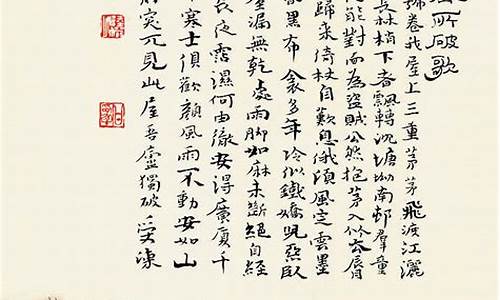 所破歌
號卷我屋上三重茅茅飛渡江灑
長林梢下者飄轉沉塘坳南邨群童
能對面為盜賊公然抱茅入竹去唇
歸来倚杖自歎息俄頃風定雲墨
黑布衾多年冷似鐵嬌兒惡臥
屋漏無乾處雨腳如麻未斷絕自經
長夜霑濕何由徹安得廣廈千
寒士俱歡顏風雨不動安如山
突兀見此屋吾廬獨破受凍